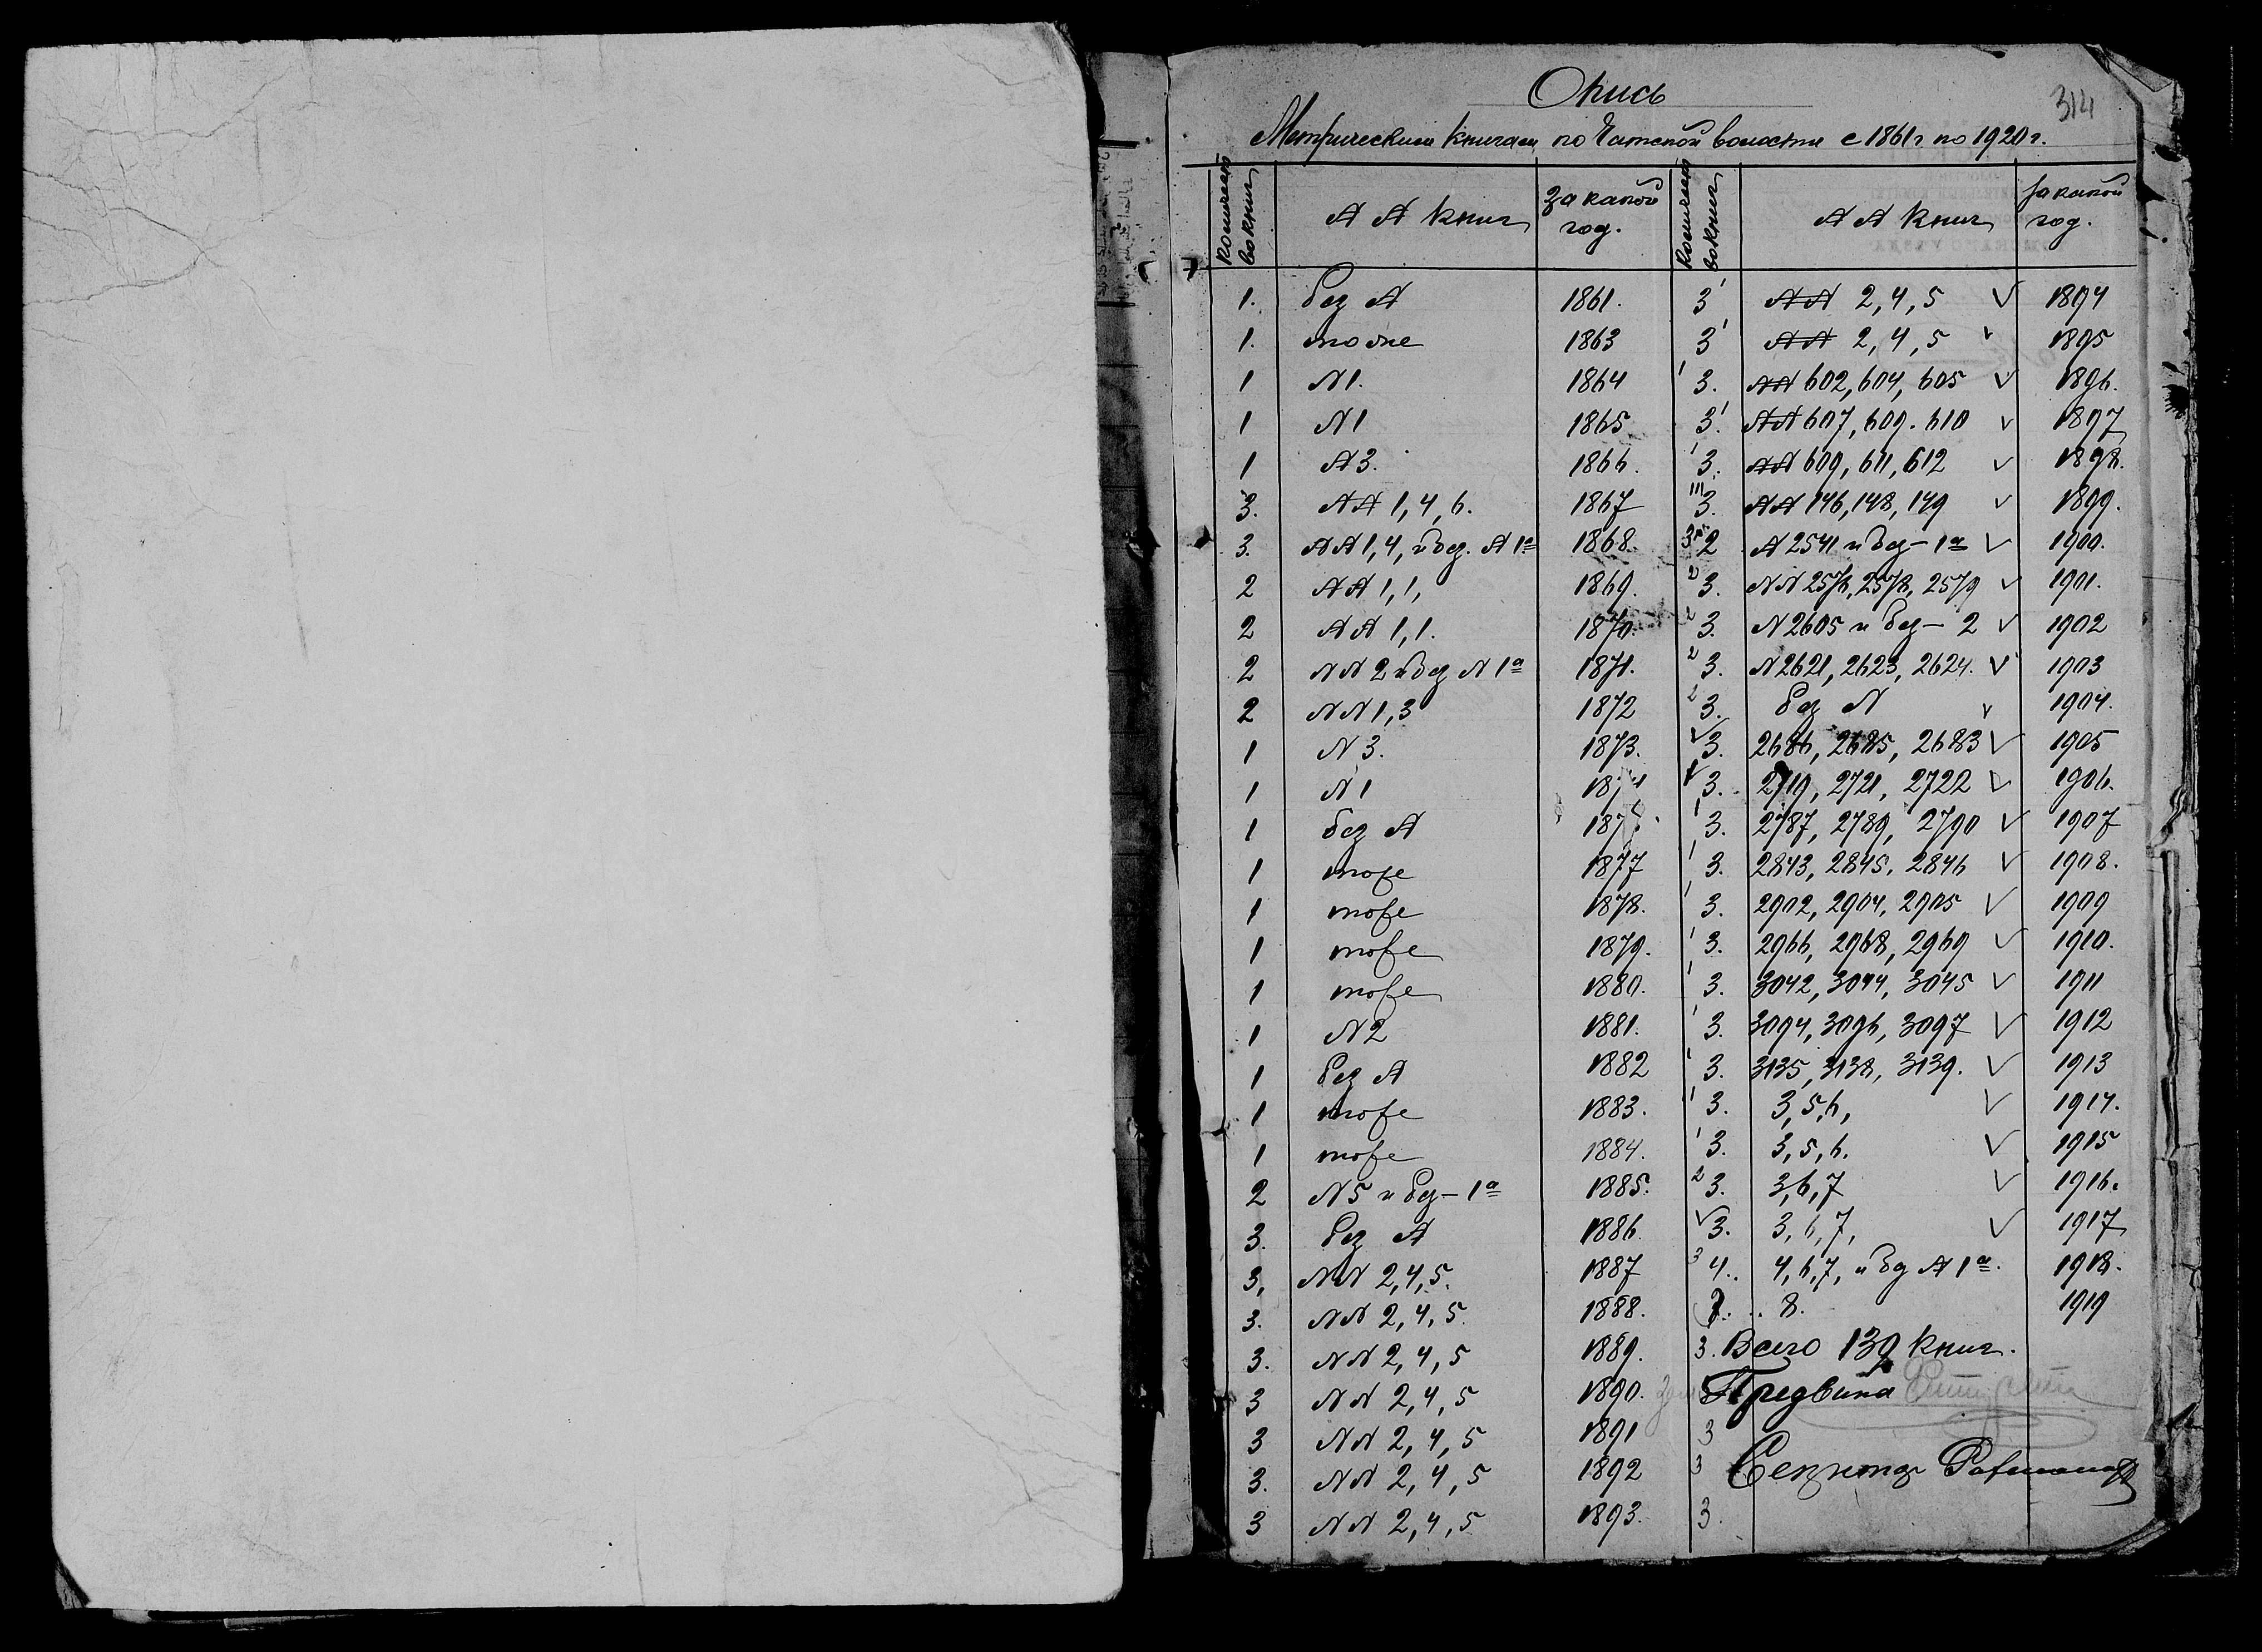 314
Опись
Метрическим книгам по Чатской волости с 1861 г по 1920 г.
Количест во книг
№ № книг
За какой год.
Количест во книг
№ № книг
За какой год.
1. без № 1861.
1. тоже 1863
1 №1. 1864
1 №1 1865
1 №3. 1866.
3. №№ 1, 4, 6. 1867
3. №№ 1, 4, и без. № 1а 1868.
2 №№ 1, 1, 1869.
2 №№ 1, 1. 1870.
2 №№ 2 и без № 1а 1871.
2 №№ 1, 3 1872
1 №3. 1873.
1 №1
1 без №
1 тоже 1877
1 тоже 1878.
1 тоже 1879.
1 тоже 1880.
1 №2 1881.
1 без № 1882
1 тоже 1883.
1 тоже 1884.
2 №5 и без – 1а 1885.
3. без № 1886.
3, №№ 2, 4, 5. 1887
3. №№ 2, 4, 5. 1888.
3. №№ 2, 4, 5 1889.
3 №№ 2, 4, 5 1890.
3 №№ 2, 4, 5 1891
3. №№ 2, 4, 5 1892
3 №№ 2, 4, 5 1893.
3 №№ 2, 4, 5 ✓ 1894
3 №№ 2, 4, 5 ✓ 1895
3. №№ 602, 604, 605 ✓ 1896.
3. №№ 607, 609. 610 ✓ 1897
3. №№ 609, 611, 612 ✓ 1898.
3. №№ 146, 148, 149 ✓ 1899.
2 № 2541 и без – 1а ✓ 1900.
2 3. №№ 2576, 2578, 2579 ✓ 1901.
2 3. №2605 и без – 2 ✓ 1902
2 3. №2621, 2623, 2624. ✓ 1903
2 3. без № ✓ 1904.
✓ 3. 2686, 2685, 2683 ✓ 1905
3. 2719, 2721, 2722 ✓ 1906.
1 3. 2787, 2789, 2790 ✓ 1907
1 3. 2843, 2845, 2846 ✓ 1908.
1 3. 2902, 2904, 2905 ✓ 1909
1 3. 2966, 2968, 2969 ✓ 1910.
1 3. 3042, 3044, 3045 ✓ 1911
1 3. 3094, 3096, 3097 ✓ 1912
1 3. 3135, 3138, 3139. ✓ 1913
1 3. 3, 5, 6, ✓ 1914.
1 3. 3, 5, 6. ✓ 1915
2 3. 3, 6, 7 ✓ 1916.
✓ 3. 3, 6, 7, ✓ 1917
3 4. 4, 6, 7, и без № 1а. 1918.
8. 1919
3. Всего 139 книг.
Предвика
3
3 Секретарь
3.